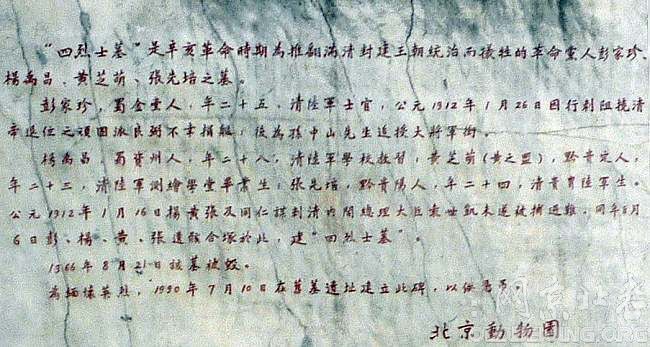 “四烈士墓”是辛亥革命時期為推翻滿清封建王朝統治而犧牲的革命黨人彭家珍、
楊禹昌、黄芝萌、張先培之墓。
彭家珍,蜀金堂人,年二十五,清陸軍士官,公元1912年1月26日因行刺阻撓清
帝退位之頑固派良弼不幸捐軀,後為孫中山先生追授大將軍銜。
楊禹昌 蜀資州人,年二十八,清陸軍學校教習;黄芝萌(黄之盟),黔貴定人,
年二十三,清陸軍測繪學堂畢業生;張先培,黔貴陽人,年二十四,清貴胄陸軍生。
公元1912年1月16日楊黄張及同仁謀刺清内閣總理大臣袁世凱未遂被捕遇難。同年8月
6日彭、楊、黄、張遺骸合塚於此,建“四烈士墓”。
1966年8月21日該墓被毁。
為緬懷英烈,1990年7月10日在舊墓遺址建立此碑,以供憑弔。
北京動物園